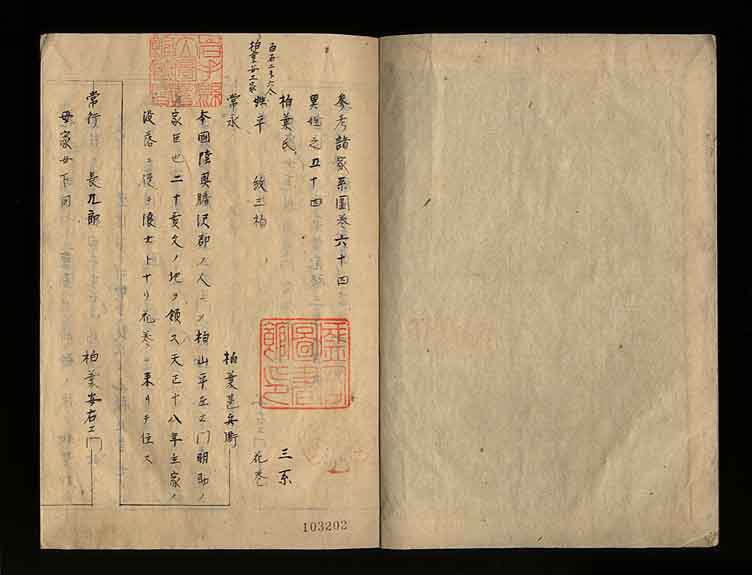 参考諸家系図巻六十四
異姓之五十四
柏葉氏 三系
姓平 紋三柏 花巻
百石二斗六合
柏葉安工家
常永 柏葉甚兵衛
本国陸奥膽沢郡ノ人ニ〆柏山平左エ門明助ノ
家臣也二十貫文ノ地ヲ領ス天正十八年主家ノ
没落ニ従テ浪士トナリ花巻ニ来リテ住ス
常行 長九郎 柏葉安右エ門
母家女下同
103202